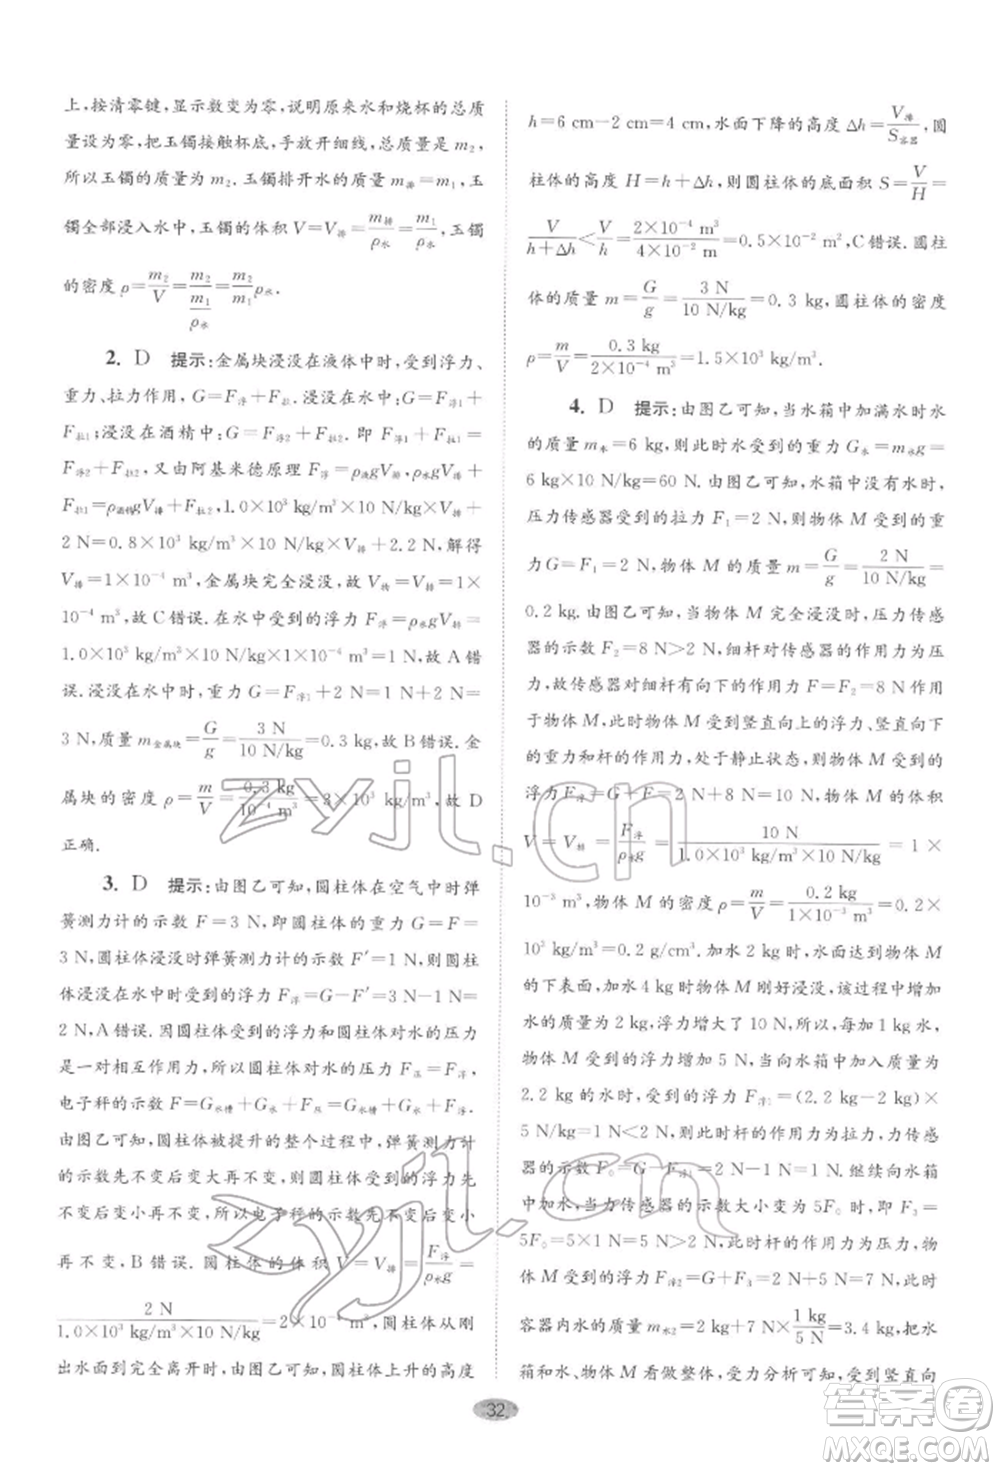 上,按清零键,显示数变为零,说明原来水和烧杯的总质
量设为零.将玉镯接触杯底,手放开细线,总质量是 m₂,
所以玉镯的质量为 m₂.玉镯排开水的质量 m排=m₁,玉
镯全部浸入水中,玉镯的体积 V=V排=m排/ρ水=m₁/ρ水,玉镯
的密度 ρ=m₂/V=m₂/(m₁/ρ水)=m₂/m₁ρ水.
2. D 提示:金属块浸没在液体中时,受到浮力、
重力、拉力作用,G=F浮+F拉.浸没在水中:G=F浮1+
F拉1;浸没在酒精中:G=F浮2+F拉2.即 F浮1+F拉1=
F浮2+F拉2,又由阿基米德原理 F浮=ρ液gV排,ρ水gV排+
F拉1=ρ酒精gV排+F拉2,1.0×10³ kg/m³×10 N/kg×V排+
2 N=0.8×10³ kg/m³×10 N/kg×V排+2.2 N,解得
V排=1×10⁻⁴ m³,金属块完全浸没,故 V物=V排=1×
10⁻⁴ m³,故 C错误.在水中时受到的浮力 F浮=ρ水gV排=
1.0×10³ kg/m³×10 N/kg×1×10⁻⁴ m³=1 N,故 A 错
误.浸没在水中时,G=F浮1+2 N=1 N+2 N=
3 N,质量 m金属块=G/g=3 N/10 N/kg=0.3 kg,故 B 错误.金
属块的密度 ρ=m/V=0.3 kg/10⁻⁴ m³=3×10³ kg/m³,故 D
正确.
3. D 提示:由图乙可知,圆柱体在空气中时弹
簧测力计的示数 F=3 N,即圆柱体的重力 G=F=
3 N,圆柱体浸没时弹簧测力计的示数 F′=1 N,则圆柱
体浸没在水中时受到的浮力 F浮=G-F′=3 N-1 N=
2 N,A错误.因圆柱体受到的浮力和圆柱体对水的压力
是一对相互作用力,所以圆柱体对水的压力 F压=F浮,
电子秤的示数 F=G水槽+G水+F压=G水槽+G水+F浮.
由图乙可知,圆柱体被提升的整个过程中,弹簧测力计
的示数先不变后变大再不变,即圆柱体受到的浮力先
不变后变小再不变,所以电子秤的示数先不变后变小
再不变,B错误.圆柱体的体积 V=V排=F浮/ρ水g=
2 N/1.0×10³ kg/m³×10 N/kg=2×10⁻⁴ m³,圆柱体从刚
出水面到完全离开时,由图乙可知,圆柱体上升的高度
h=6 cm-2 cm=4 cm,水面下降的高度 Δh=V排/S容器,圆
柱体的高度 H=h+Δh,则圆柱体的底面积 S=V/H=
V/h+Δh<V/h=2×10⁻⁴ m³/4×10⁻² m=0.5×10⁻² m²,C错误.圆柱
体的质量 m=G/g=3 N/10 N/kg=0.3 kg,圆柱体的密度
ρ=m/V=0.3 kg/2×10⁻⁴ m³=1.5×10³ kg/m³.
4. D 提示:由图乙可知,当水箱中加满水时水
的质量 m水=6 kg,此时水受到的重力 G水=m水g=
6 kg×10 N/kg=60 N.由图乙可知,水箱中没有水时,
压力传感器受到的拉力 F₁=2 N,则物体 M 受到的重
力G=F₁=2 N,物体 M 的质量 m=G/g=2 N/10 N/kg=
0.2 kg.由图乙可知,当物体 M 完全浸没时,压力传感
器的示数 F₂=8 N>2 N,细杆对传感器的作用力向
上,故传感器对细杆有向下的压力 F=F₂=8 N作用
于物体 M,此时物体 M 受到竖直向上的浮力、竖直向下
的重力和杆的作用力,处于静止状态.则物体 M 受到的
浮力 F浮=G+F=2 N+8 N=10 N,物体 M 的体积
V=V排=F浮/ρ水g=10 N/1.0×10³ kg/m³×10 N/kg=1×
10⁻³ m³,物体 M 的密度 ρ=m/V=0.2 kg/1×10⁻³ m³=0.2×
10³ kg/m³=0.2 g/cm³.加水 2 kg时,水面达到物体 M
的下表面,加水 4 kg 时物体 M 刚好浸没,该过程中加
水的质量为 2 kg,浮力增大了 10 N,所以,每加 1 kg水,
物体 M 受到的浮力 5 N.当向水箱中加入质量为
2.2 kg 的水时,受到的浮力 F浮1=(2.2 kg-2 kg)×
5 N/kg=1 N<2 N,此时杆的作用力为拉力,力传感
器的示数 F₀=G-F浮1=2 N-1 N=1 N.继续向水箱
中加水,当力传感器的示数大小变为 5F₀时,即 F₃=
5F₀=5×1 N=5 N>2 N,此时杆的作用力为压力,物
体受到的浮力 F浮2=G+F₃=2 N+5 N=7 N,此时
容器内水的质量 m水2=2 kg+7 N×1 kg/5 N=3.4 kg,把水
箱和水、物体 M 看做整体,受力分析可知,受到竖直向
32
zyjl.cn
zyjl.cn
答案圈
MXQE.COM